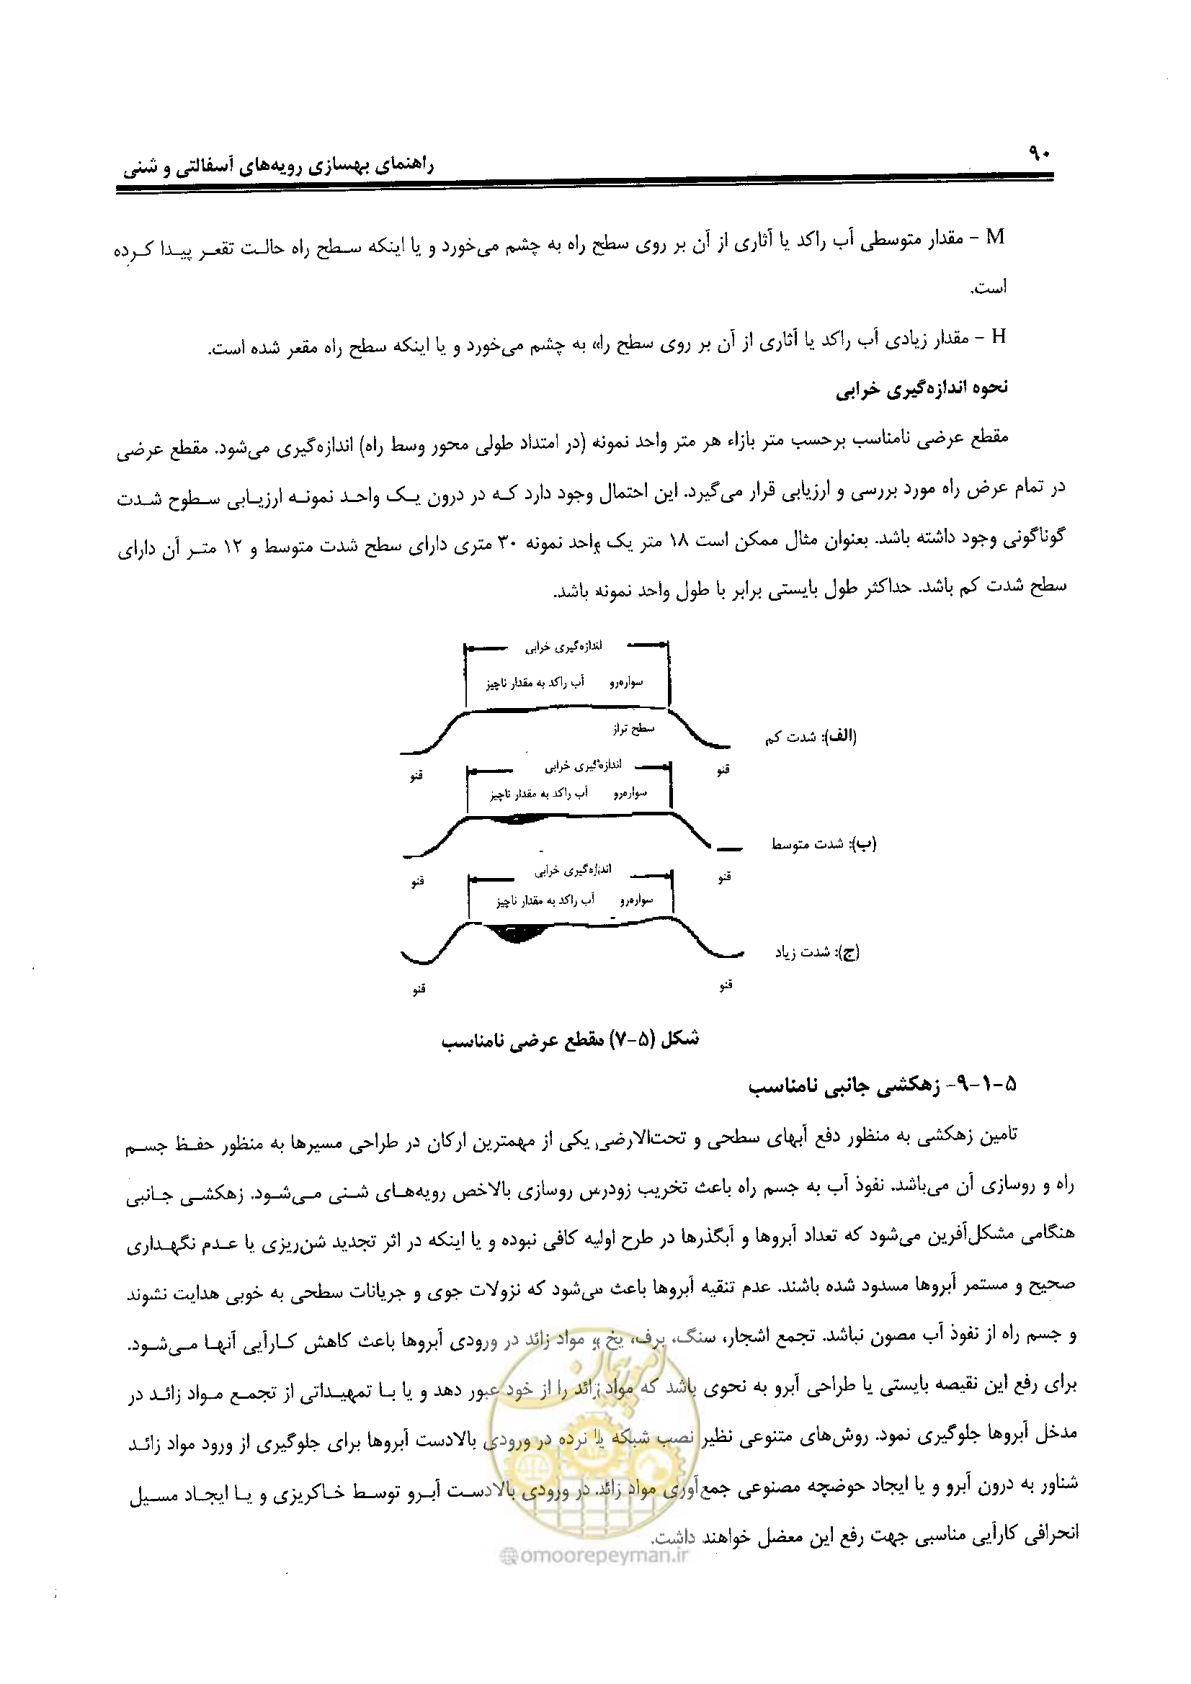 ۹۰
راهنمای بهسازی رویه‌های آسفالتی و شنی
M – مقدار متوسطی آب راکد یا آثاری از آن بر روی سطح راه به چشم می‌خورد و یا اینکه سطح راه حالت تقعر پیدا کرده
است.
H – مقدار زیادی آب راکد یا آثاری از آن بر روی سطح راه به چشم می‌خورد و یا اینکه سطح راه مقعر شده است.
نحوه اندازه‌گیری خرابی
مقطع عرضی نامناسب برحسب متر بازاء هر متر واحد نمونه (در امتداد طولی محور وسط راه) اندازه‌گیری می‌شود. مقطع عرضی
در تمام عرض راه مورد بررسی و ارزیابی قرار می‌گیرد. این احتمال وجود دارد که در درون یک واحد نمونه ارزیابی سطوح شدت
گوناگونی وجود داشته باشد. بعنوان مثال ممکن است ۱۸ متر یک واحد نمونه ۳۰ متری دارای سطح شدت متوسط و ۱۲ متر آن دارای
سطح شدت کم باشد. حداکثر طول بایستی برابر با طول واحد نمونه باشد.
اندازه‌گیری خرابی
سواره‌رو آب راکد به مقدار ناچیز
سطح تراز
(الف): شدت کم
قنو قنو
اندازه‌گیری خرابی
سواره‌رو آب راکد به مقدار ناچیز
(ب): شدت متوسط
قنو قنو
اندازه‌گیری خرابی
سواره‌رو آب راکد به مقدار ناچیز
(ج): شدت زیاد
قنو قنو
شکل (۵-۷) مقطع عرضی نامناسب
۵-۱-۹- زهکشی جانبی نامناسب
تامین زهکشی به منظور دفع آبهای سطحی و تحت‌الارضی یکی از مهمترین ارکان در طراحی مسیرها به منظور حفظ جسم
راه و روسازی آن می‌باشد. نفوذ آب به جسم راه باعث تخریب زودرس روسازی بالاخص رویه‌های شنی می‌شود. زهکشی جانبی
هنگامی مشکل‌آفرین می‌شود که تعداد آبروها و آبگذرها در طرح اولیه کافی نبوده و یا اینکه در اثر تجدید شن‌ریزی یا عدم نگهداری
صحیح و مستمر آبروها مسدود شده باشند. عدم تنقیه آبروها باعث می‌شود که نزولات جوی و جریانات سطحی به خوبی هدایت نشوند
و جسم راه از نفوذ آب مصون نباشد. تجمع اشجار، سنگ، برف، یخ و مواد زائد در ورودی آبروها باعث کاهش کارآیی آنها می‌شود.
برای رفع این نقیصه بایستی یا طراحی آبرو به نحوی باشد که مواد زائد را از خود عبور دهد و یا با تمهیداتی از تجمع مواد زائد در
مدخل آبروها جلوگیری نمود. روش‌های متنوعی نظیر نصب شبکه یا نرده در ورودی بالادست آبروها برای جلوگیری از ورود مواد زائد
شناور به درون آبرو و یا ایجاد حوضچه مصنوعی جمع‌آوری مواد زائد در ورودی بالادست آبرو توسط خاکریزی و یا ایجاد مسیل
انحرافی کارآیی مناسبی جهت رفع این معضل خواهند داشت.
امور پیمان
@omoorepeyman.ir